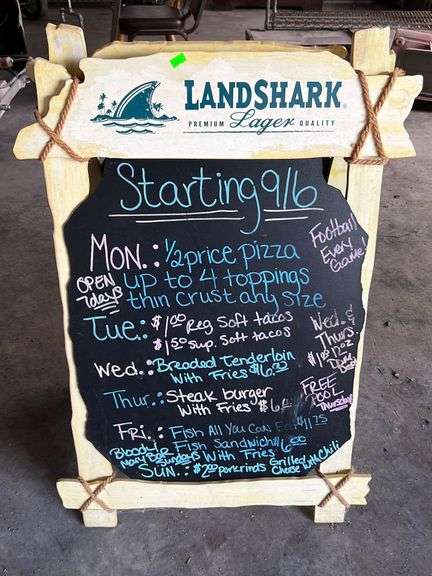 LANDSHARK
PREMIUM Lager QUALITY
Starting 9/6
MON.: 1/2 price pizza
up to 4 toppings
thin crust any size
OPEN
7days
Football
Every
Game!
Tue.: $1.00 Reg Soft tacos
$1.50 Sup. Soft tacos
Wed.: Breaded Tenderloin
With Fries $6.
Wed. &
Thurs.
$1.00 12oz
Thur.: Steak burger
With Fries $6
FREE
POOL
Thursdays
Fri.: Fish All You Can Eat $11.75
Fish Sandwich $6.00
With Fries
Bloody
Mary Bar
Sundays
SUN.: $2.00 porkrinds Grilled
Cheese with Chili